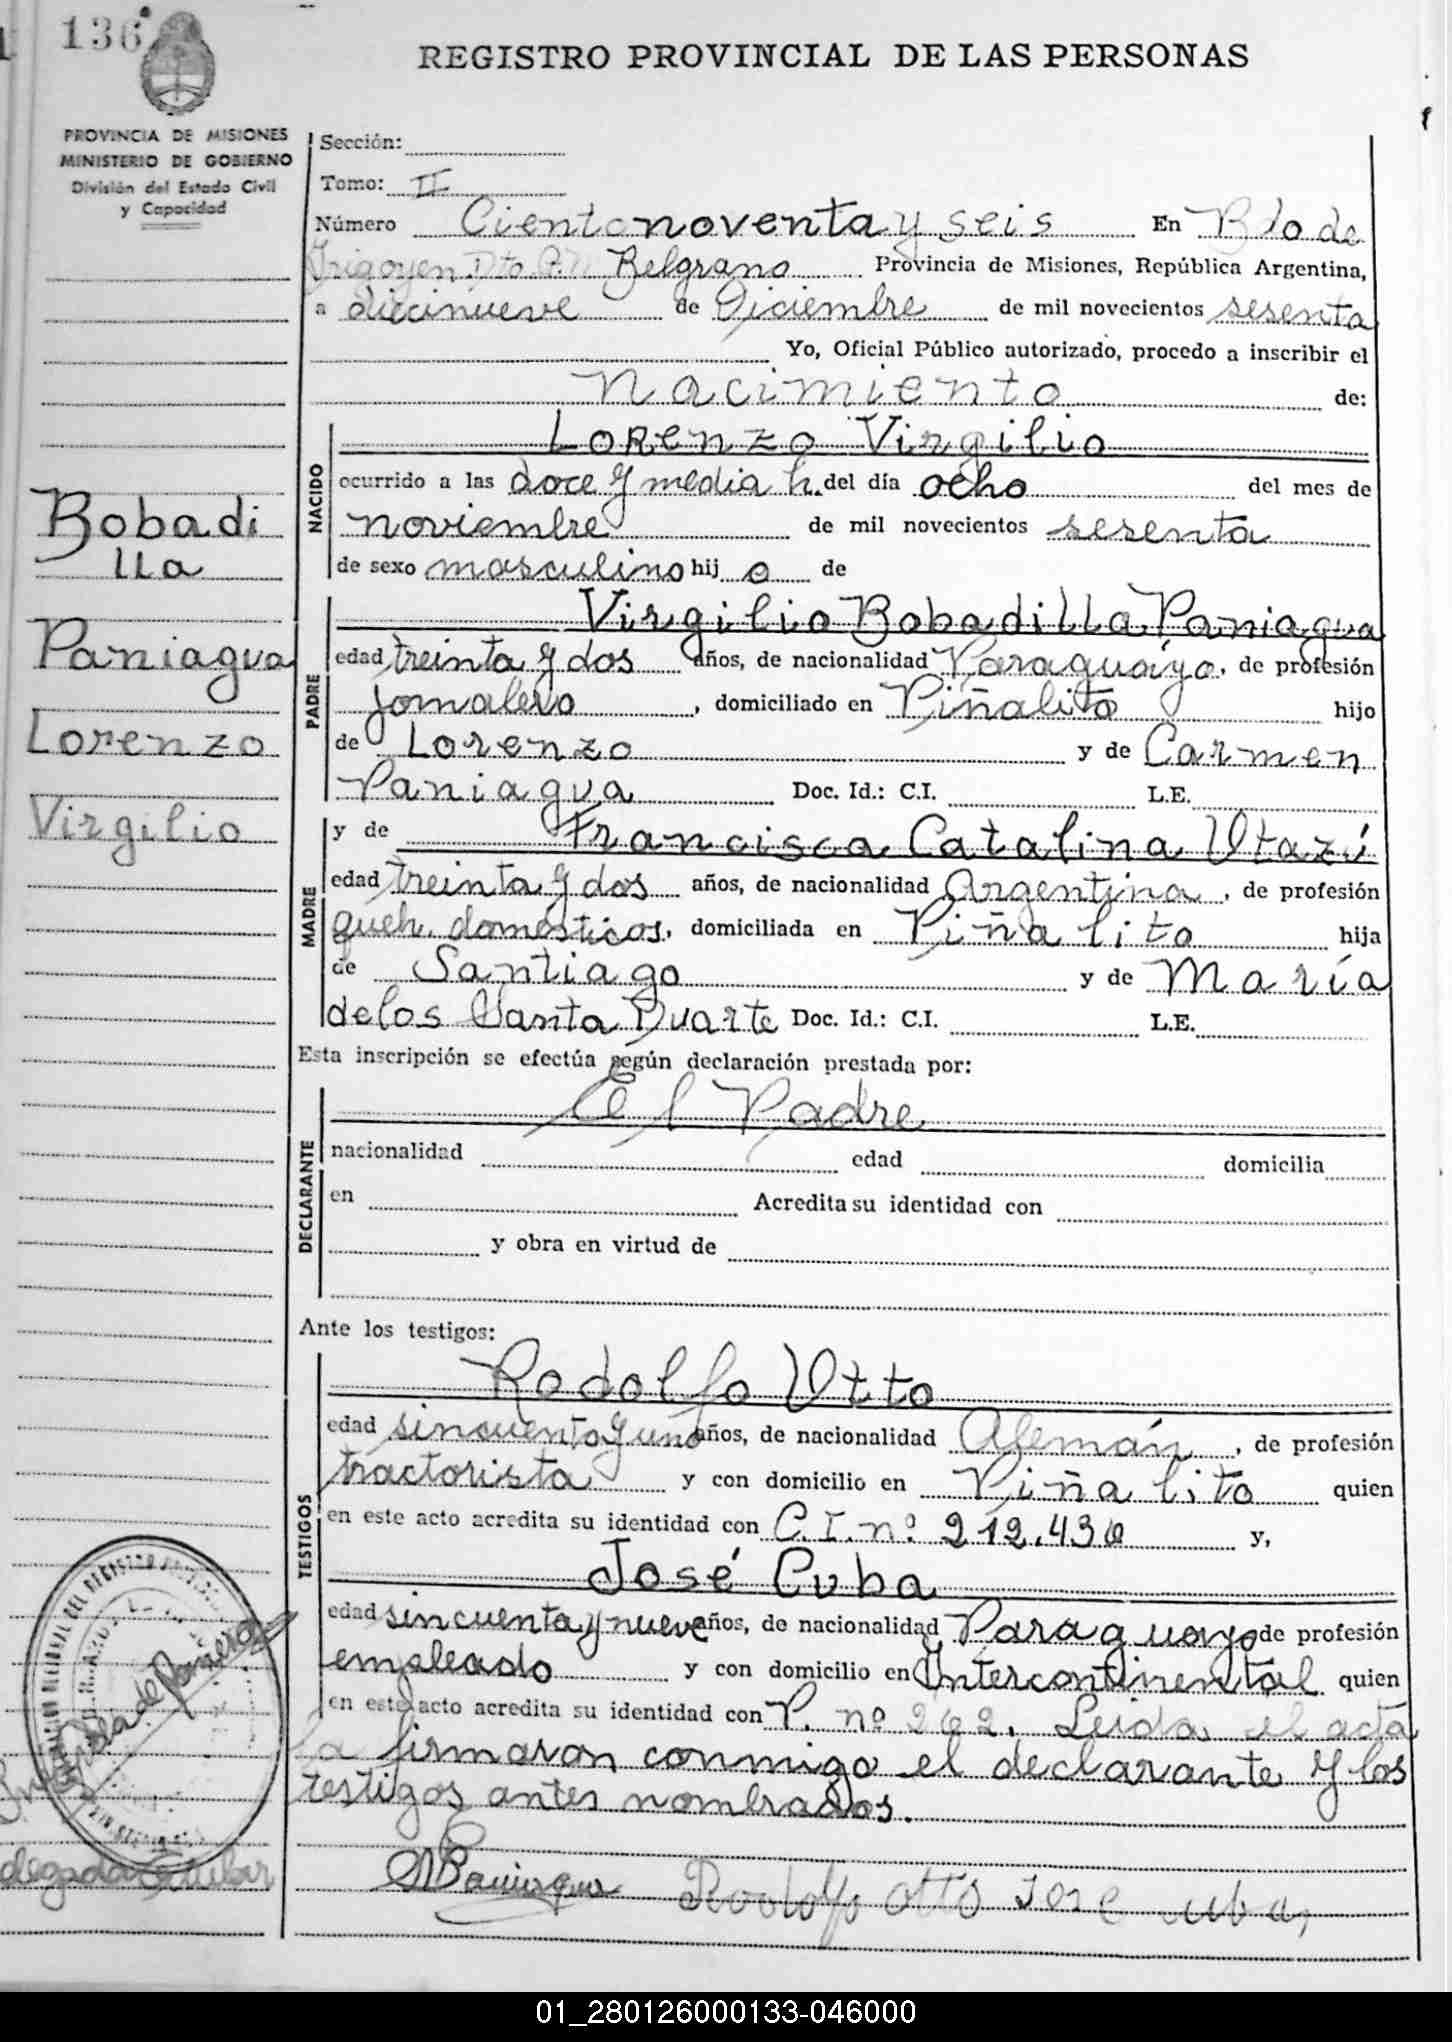 136
REGISTRO PROVINCIAL DE LAS PERSONAS
PROVINCIA DE MISIONES
MINISTERIO DE GOBIERNO
División del Estado Civil
y Capacidad
Sección:
Tomo: II
Número Ciento noventa y seis En Bdo de
Irigoyen Dto Belgrano Provincia de Misiones, República Argentina,
a diecinueve de Diciembre de mil novecientos sesenta
Yo, Oficial Público autorizado, procedo a inscribir el
Nacimiento de:
NACIDO
Lorenzo Virgilio
ocurrido a las doce y media h. del día ocho del mes de
noviembre de mil novecientos sesenta
de sexo masculino hij o de
Bobadi
lla
Paniagua
Lorenzo
Virgilio
PADRE
Virgilio Bobadilla Paniagua
edad treinta y dos años, de nacionalidad Paraguayo, de profesión
jornalero, domiciliado en Piñalito hijo
de Lorenzo y de Carmen
Paniagua Doc. Id.: C.I. L.E.
MADRE
y de Francisca Catalina Utazú
edad treinta y dos años, de nacionalidad Argentina, de profesión
queh. domésticos, domiciliada en Piñalito hija
de Santiago y de María
de los Santa Duarte Doc. Id.: C.I. L.E.
Esta inscripción se efectúa según declaración prestada por:
DECLARANTE
El Padre
nacionalidad edad domicilia
en Acredita su identidad con
y obra en virtud de
Ante los testigos:
TESTIGOS
Rodolfo Utto
edad sincuenta y uno años, de nacionalidad Alemán, de profesión
tractorista y con domicilio en Piñalito quien
en este acto acredita su identidad con C.I. nº 212.436 y,
José Cuba
edad sincuenta y nueve años, de nacionalidad Paraguayo de profesión
empleado y con domicilio en Intercontinental quien
en este acto acredita su identidad con P. nº 262. Leida el acta
la firmaron conmigo el declarante y los
testigos antes nombrados.
Paniagua Rodolfo Otto Jose Cuba
01_280126000133-046000